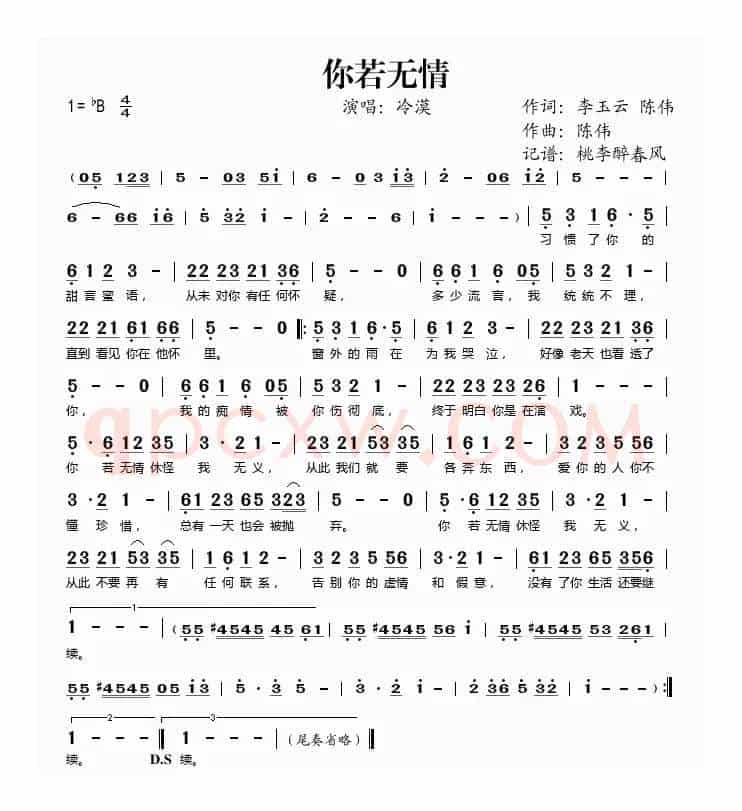 你若无情
1=♭B 4/4 演唱：冷漠 作词：李玉云 陈伟
作曲：陈伟
记谱：桃李醉春风
(05 123 | 5 - 03 5i | 6 - 03 i3 | 2 - 06 i2 | 5 - - -
6 - 66 i6 | 5 32 i - | i - 22 i6 | 2 - - - | i - - - ) | 5 3 16· 5 |
习惯了你的
6 1 2 3 - | 22 23 21 36 | 5 - - 0 | 6 6 1 6 05 | 5 3 2 1 - |
甜言蜜语， 从未对你有任何怀 疑， 多少流言，我 统统不理，
22 21 61 66 | 5 - - 0 ‖: 5 3 1 6· 5 | 6 1 2 3 - | 22 23 21 36 |
直到看见你在他怀 里。 窗外的雨在 为我哭泣， 好像老天也看透了
5 - - 0 | 6 6 1 6 05 | 5 3 2 1 - | 22 23 23 26 | 1 - - 0 |
你， 我的痴情被 你伤彻底， 终于明白你是在演 戏。
5 · 6 12 35 | 3 · 2 1 - | 23 21 53 35 | 1 6 1 2 - | 12 3 23 56 |
你 若无情休怪 我 无义， 从此我们就要 各奔东西， 爱你的人你不
3 · 2 1 - | 61 23 65 323 | 5 - - 0 | 5 · 6 12 35 | 3 · 2 1 - |
懂 珍惜， 总有一天也会被抛 弃。 你 若无情休怪 我 无义，
23 21 53 35 | 1 6 1 2 - | 12 3 23 5 56 | 3 · 2 1 - | 61 23 65 356 |
从此不要再有 任何联系， 告别你的虚情 和 假意， 没有了你生活还要继
1
1 - - - | (55 #4545 45 61 | 55 #4545 56 i | 55 61 53 261 |
续。
55 #4545 05 i3 | 5 · 3 5 - | 3 · 2 i - | 22 326 5 32 | i - - ) :‖
2 3
1 - - - ‖ 1 - - - | (尾奏省略) ‖
续。 D.S 续。
qpcxw.COM